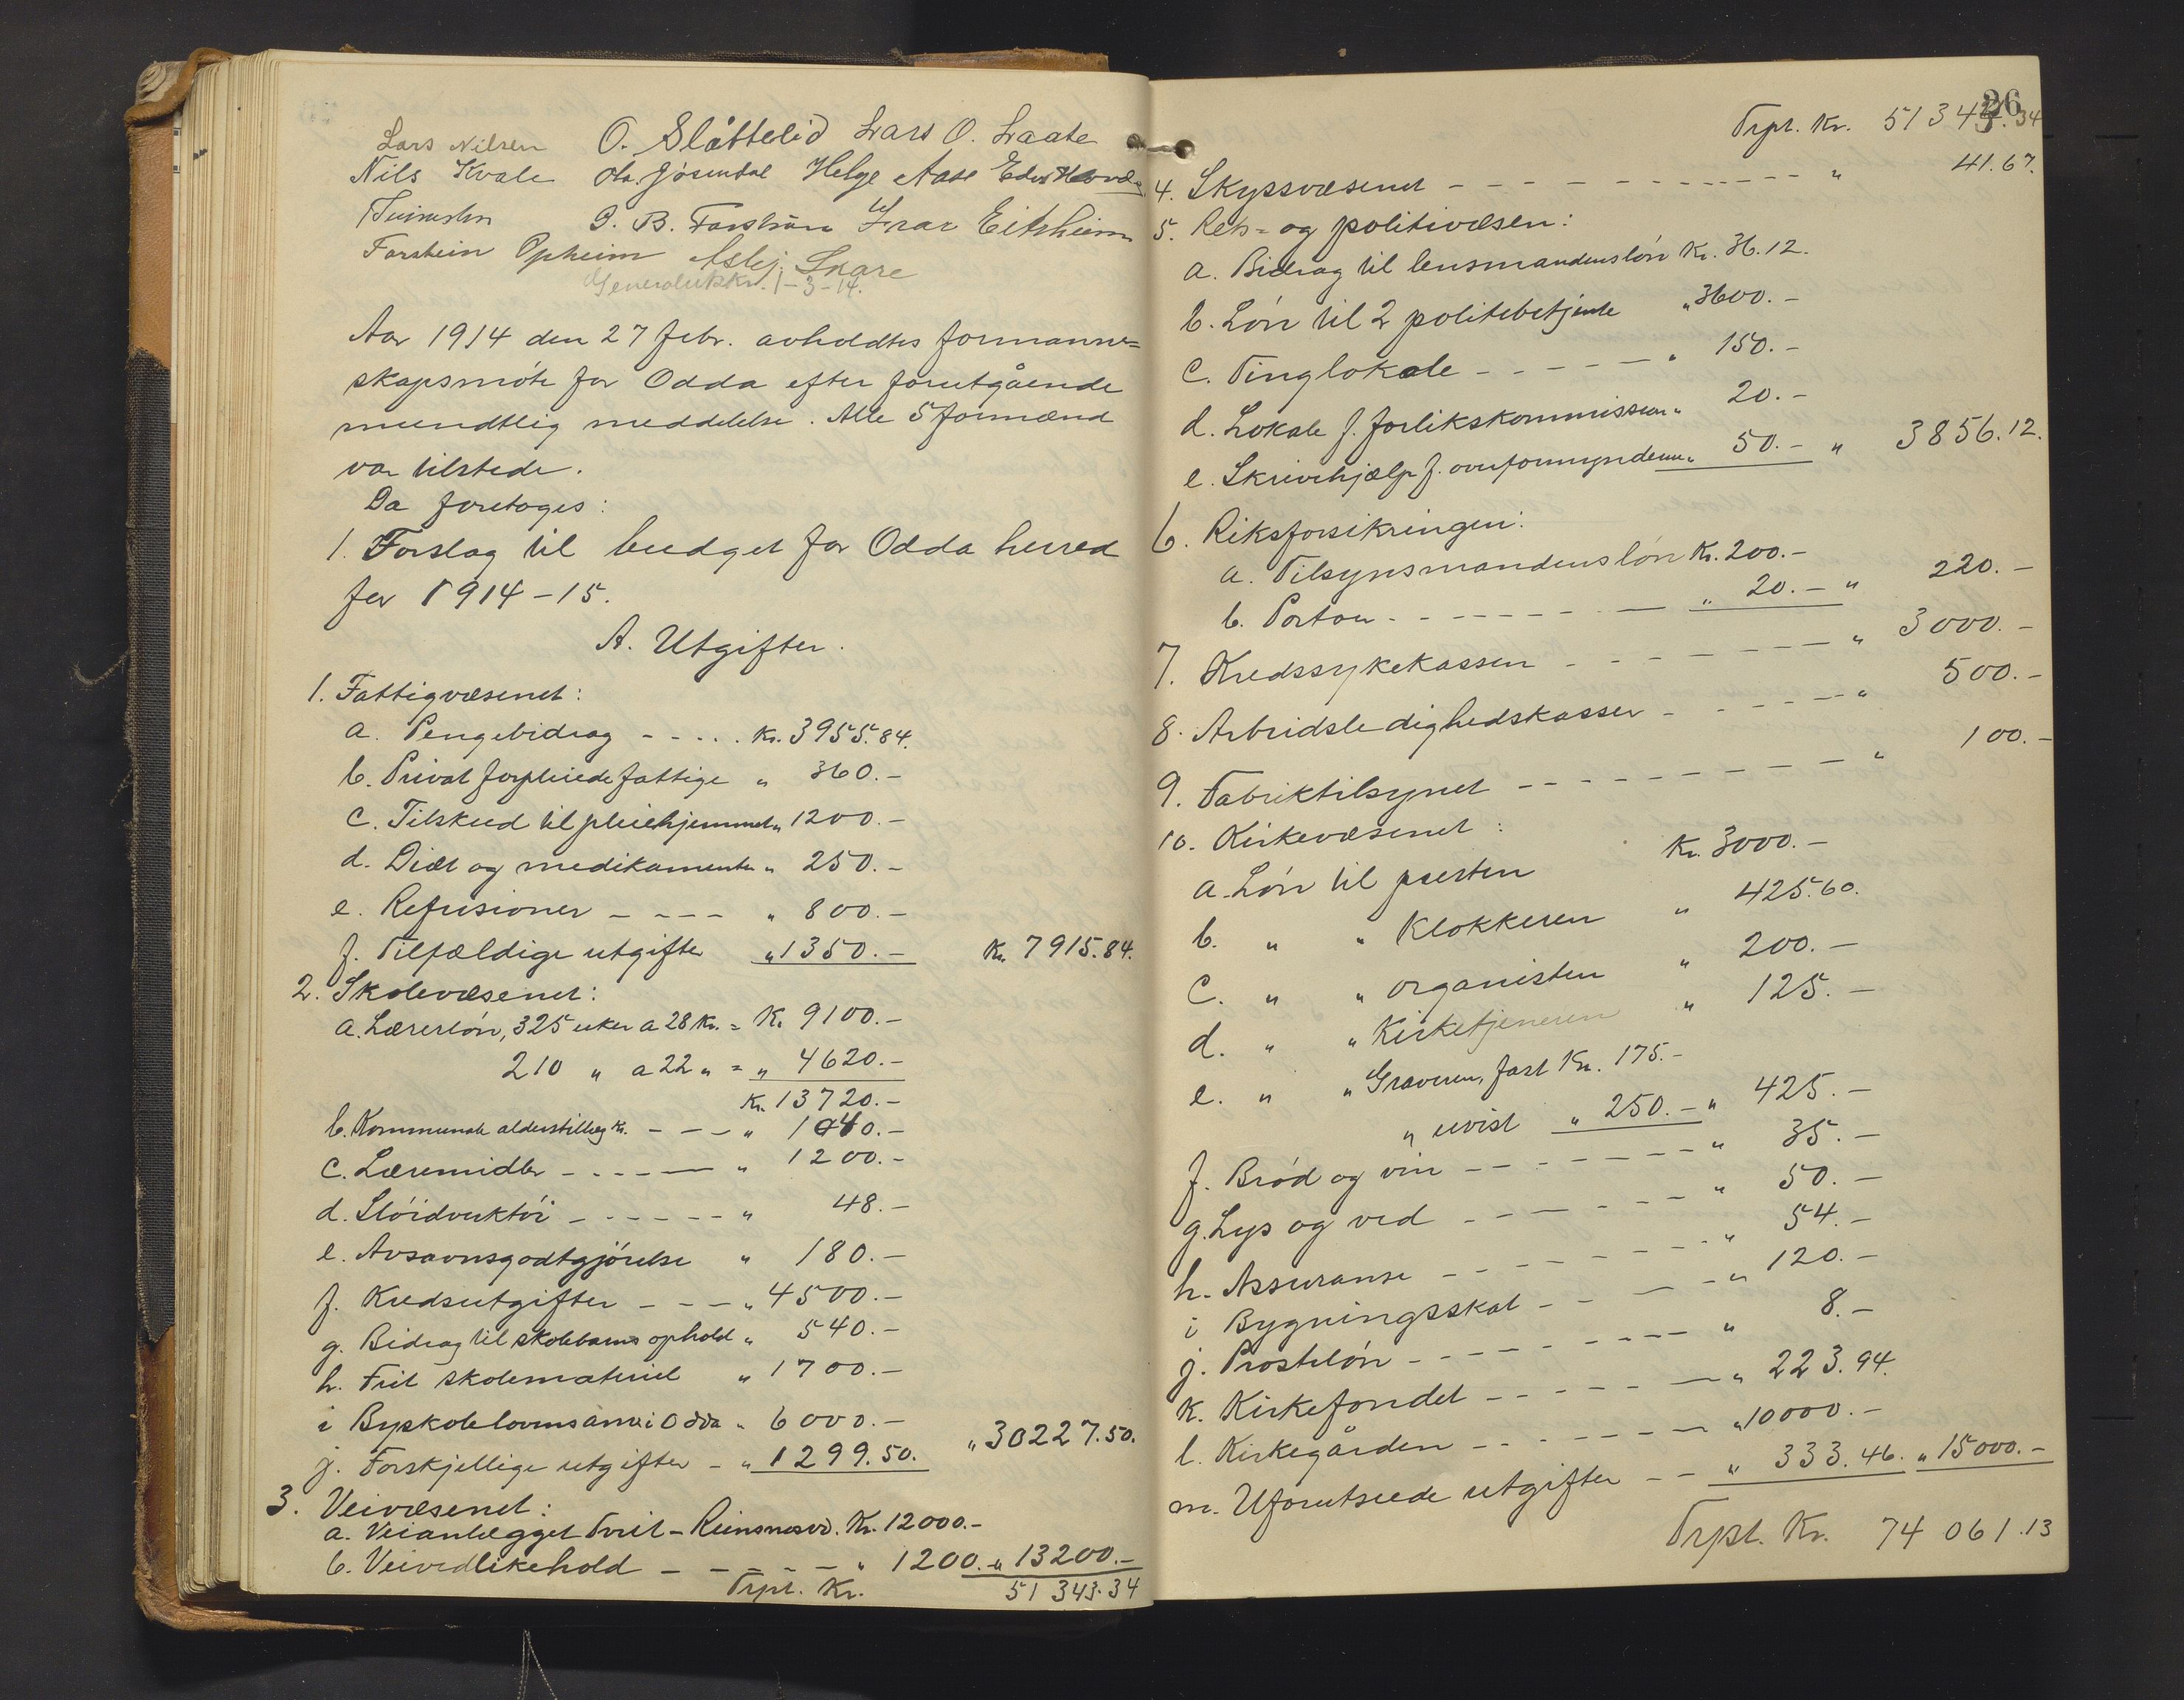 Lars Nilsen O. Slåttelid Lars O. Laate
Nils Kvale Ola Jøsendal Helge Aase
G. B. Ivar Eitrheim
Torstein Opheim Aslej. Skare
Generalutskr. 1-3-14.
Aar 1914 den 27 febr. avholdtes formann=
skapsmøte for Odda efter forutgående
mundtlig meddelelse. Alle 5 formænd
var tilstede.
Da foretoges:
1. Forslag til budget for Odda herred
for 1914-15.
A. Utgifter.
1. Fattigvæsenet:
a. Pengebidrag - - - . . Kr. 3955.84.
b. Privat forpleiede fattige " 360.-
c. Tilskud til pleiehjemmet " 1200.-
d. Diæt og medikamenter " 250.-
e. Refusioner - - - - " 800.-
f. Tilfældige utgifter " 1350.- Kr. 7915.84.
2. Skolevæsenet:
a. Lærerløn, 325 uker a 28 Kr. = Kr. 9100.-
210 " a 22 " = " 4620.-
Kr. 13720.-
b. Kommunale alderstillæg Kr. - - - " 1040.-
c. Læremidler - - - - - " 1200.-
d. Sløidverktøi - - - - - - " 48.-
e. Avsavnsgodtgjørelse " 180.-
f. Kredsutgifter - - - " 4500.-
g. Bidrag til skolebarns ophold " 540.-
h. Frit skolemateriel " 1700.-
i Byskolelovens anv. i Odda " 6000.-
j. Forskjellige utgifter - " 1299.50. " 30227.50.
3. Veivæsenet:
a. Veianlægget Tveit-Reinsnosv. Kr. 12000.-
b. Veivedlikehold - - - - - " 1200.- " 13200.-
Trpt. Kr. 51 343.34
26
Trpt. Kr. 51343.34
4. Skyssvæsenet - - - - - - - - - - - - " 41.67.
5. Rets- og politivæsen:
a. Bidrag til lensmandensløn Kr. 36.12.
b. Løn til 2 politibetjente " 3600.-
c. Tinglokale - - - - - " 150.-
d. Lokale f. forlikskommissionen " 20.-
e. Skrivehjælp f. overformynderne " 50.- " 3856.12.
6. Riksforsikringen:
a. Tilsynsmandens løn Kr. 200.-
b. Portoer - - - - - - - - - " 20.- " 220.-
7. Kredssykekassen - - - - - - - - " 3000.-
8. Arbeidsledighedskasser - - - - - - " 500.-
9. Fabriktilsynet - - - - - - - - - - " 100.-
10. Kirkevæsenet:
a. Løn til presten Kr. 3000.-
b. " " Klokkeren " 425.60.
c. " " organisten " 200.-
d. " " Kirketjeneren " 125.-
e. " " Graveren, fast Kr. 175.-
" uvist " 250.- " 425.-
f. Brød og vin - - - - - - - - " 35.-
g. Lys og ved - - - - - - - " 50.-
h. Assuranse - - - - - - - - " 54.-
i Bygningsskat - - - - - " 120.-
j. Prosteløn - - - - - - - - - " 8.-
k. Kirkefondet - - - - - - " 223.94.
l. Kirkegården - - - - - - - " 10000.-
m. Uforutseede utgifter - - " 333.46. " 15000.-
Trpt. Kr. 74 061.13